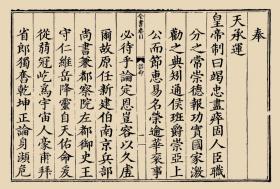 奉
天承運
皇帝制曰竭忠盡瘁固人臣職
分之常崇德報功實國家激
勸之典矧通侯班爵崇亞上
公而節惠易名榮逾華袞事
全書卷首
誥命
必待乎論定恩豈容以久虛
爾故原任新建伯南京兵部
尚書兼都察院左都御史王
守仁維岳降靈自天佑命爰
從弱冠屹為宇宙人豪甫拜
省郎獨奮乾坤正論身瀕危